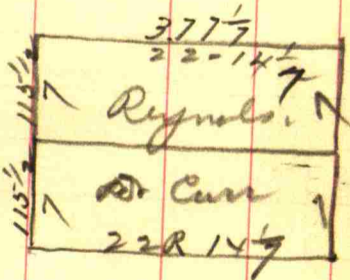 377 1/7
22-14 1/7
115 1/2
7
Reynols.
7
115 1/2
7
Dr Curr
7
22R 14 1/7